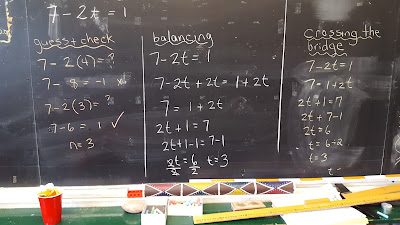 7-2t = 1
guess+check
7-2(4)=?
7- 8 = -1 x
7-2(3)=?
7-6 = 1 ✓
n=3
balancing
7-2t = 1
7-2t+2t = 1+2t
7 = 1+2t
2t+1=7
2t+1-1=7-1
2t/2 = 6/2 t=3
crossing the
bridge
7-2t=1
7=1+2t
2t+1=7
2t+7-1
2t=6
t=6÷2
t=3
t=